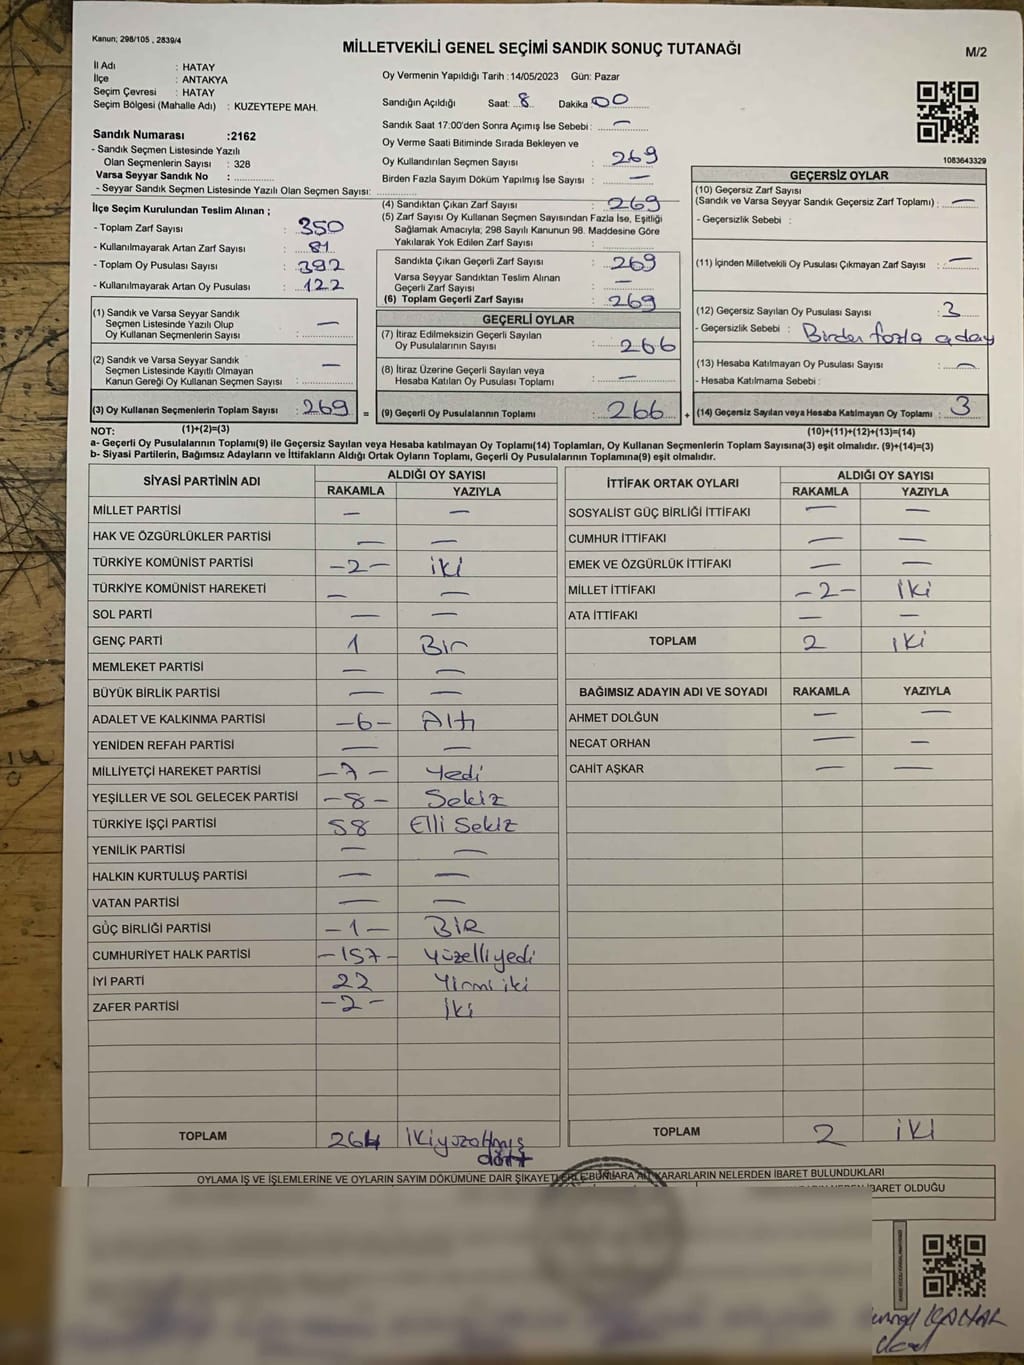 Kanun; 298/105 , 2839/4
MİLLETVEKİLİ GENEL SEÇİMİ SANDIK SONUÇ TUTANAĞI
M/2
İl Adı : HATAY
İlçe : ANTAKYA
Seçim Çevresi : HATAY
Seçim Bölgesi (Mahalle Adı) : KUZEYTEPE MAH.
Sandık Numarası :2162
- Sandık Seçmen Listesinde Yazılı
Olan Seçmenlerin Sayısı : 328
Varsa Seyyar Sandık No :
- Seyyar Sandık Seçmen Listesinde Yazılı Olan Seçmen Sayısı:
İlçe Seçim Kurulundan Teslim Alınan ;
- Toplam Zarf Sayısı : 350
- Kullanılmayarak Artan Zarf Sayısı : 81
- Toplam Oy Pusulası Sayısı : 392
- Kullanılmayarak Artan Oy Pusulası : 122
(1) Sandık ve Varsa Seyyar Sandık
Seçmen Listesinde Yazılı Olup
Oy Kullanan Seçmenlerin Sayısı : —
(2) Sandık ve Varsa Seyyar Sandık
Seçmen Listesinde Kayıtlı Olmayan
Kanun Gereği Oy Kullanan Seçmen Sayısı : —
(3) Oy Kullanan Seçmenlerin Toplam Sayısı : 269 =
Oy Vermenin Yapıldığı Tarih :14/05/2023 Gün: Pazar
Sandığın Açıldığı Saat: 8 Dakika 00
Sandık Saat 17:00'den Sonra Açımış İse Sebebi : —
Oy Verme Saati Bitiminde Sırada Bekleyen ve
Oy Kullandırılan Seçmen Sayısı : 269
Birden Fazla Sayım Döküm Yapılmış İse Sayısı : —
(4) Sandıktan Çıkan Zarf Sayısı : 269
(5) Zarf Sayısı Oy Kullanan Seçmen Sayısından Fazla İse, Eşitliği
Sağlamak Amacıyla; 298 Sayılı Kanunun 98. Maddesine Göre
Yakılarak Yok Edilen Zarf Sayısı :
Sandıkta Çıkan Geçerli Zarf Sayısı : 269
Varsa Seyyar Sandıktan Teslim Alınan
Geçerli Zarf Sayısı : —
(6) Toplam Geçerli Zarf Sayısı : 269
GEÇERLİ OYLAR
(7) İtiraz Edilmeksizin Geçerli Sayılan
Oy Pusulalarının Sayısı : 266
(8) İtiraz Üzerine Geçerli Sayılan veya
Hesaba Katılan Oy Pusulası Toplamı : —
(9) Geçerli Oy Pusulalarının Toplamı : 266 +
1083643329
GEÇERSİZ OYLAR
(10) Geçersiz Zarf Sayısı
(Sandık ve Varsa Seyyar Sandık Geçersiz Zarf Toplamı) : —
- Geçersizlik Sebebi :
(11) İçinden Milletvekili Oy Pusulası Çıkmayan Zarf Sayısı : —
(12) Geçersiz Sayılan Oy Pusulası Sayısı : 3
- Geçersizlik Sebebi : Birden fazla aday
(13) Hesaba Katılmayan Oy Pusulası Sayısı : —
- Hesaba Katılmama Sebebi :
(14) Geçersiz Sayılan veya Hesaba Katılmayan Oy Toplamı : 3
NOT: (1)+(2)=(3) (10)+(11)+(12)+(13)=(14)
a- Geçerli Oy Pusulalarının Toplamı(9) ile Geçersiz Sayılan veya Hesaba katılmayan Oy Toplamı(14) Toplamları, Oy Kullanan Seçmenlerin Toplam Sayısına(3) eşit olmalıdır. (9)+(14)=(3)
b- Siyasi Partilerin, Bağımsız Adayların ve İttifakların Aldığı Ortak Oyların Toplamı, Geçerli Oy Pusulalarının Toplamına(9) eşit olmalıdır.
SİYASİ PARTİNİN ADI ALDIĞI OY SAYISI
RAKAMLA YAZIYLA
MİLLET PARTİSİ — —
HAK VE ÖZGÜRLÜKLER PARTİSİ — —
TÜRKİYE KOMÜNİST PARTİSİ -2- iki
TÜRKİYE KOMÜNİST HAREKETİ — —
SOL PARTİ — —
GENÇ PARTİ 1 Bir
MEMLEKET PARTİSİ — —
BÜYÜK BİRLİK PARTİSİ — —
ADALET VE KALKINMA PARTİSİ -6- Altı
YENİDEN REFAH PARTİSİ — —
MİLLİYETÇİ HAREKET PARTİSİ -7- Yedi
YEŞİLLER VE SOL GELECEK PARTİSİ -8- Sekiz
TÜRKİYE İŞÇİ PARTİSİ 58 Elli Sekiz
YENİLİK PARTİSİ — —
HALKIN KURTULUŞ PARTİSİ — —
VATAN PARTİSİ — —
GÜÇ BİRLİĞİ PARTİSİ -1- BİR
CUMHURİYET HALK PARTİSİ -157- Yüzelliyedi
İYİ PARTİ 22 Yirmi iki
ZAFER PARTİSİ -2- iki
TOPLAM 264 ikiyüzaltmış
dört
İTTİFAK ORTAK OYLARI ALDIĞI OY SAYISI
RAKAMLA YAZIYLA
SOSYALİST GÜÇ BİRLİĞİ İTTİFAKI — —
CUMHUR İTTİFAKI — —
EMEK VE ÖZGÜRLÜK İTTİFAKI — —
MİLLET İTTİFAKI -2- iki
ATA İTTİFAKI — —
TOPLAM 2 iki
BAĞIMSIZ ADAYIN ADI VE SOYADI RAKAMLA YAZIYLA
AHMET DOLĞUN — —
NECAT ORHAN — —
CAHİT AŞKAR — —
TOPLAM 2 iki
OYLAMA İŞ VE İŞLEMLERİNE VE OYLARIN SAYIM DÖKÜMÜNE DAİR ŞİKAYETLERLE BUNLARA AİT KARARLARIN NELERDEN İBARET BULUNDUKLARI
İBARET OLDUĞU